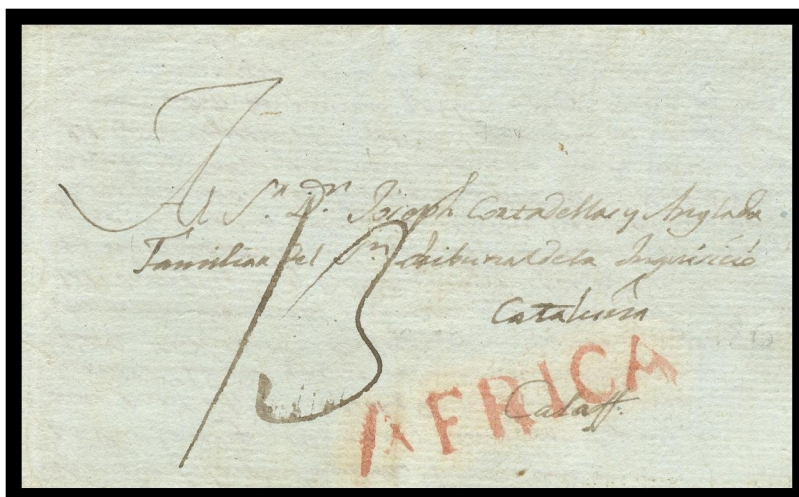 Al S.r D.n Joseph Cortadellas y Anglada
Familiar del S.to tribunal de la Inquisició
Cataluña
Calaff.
AFRICA